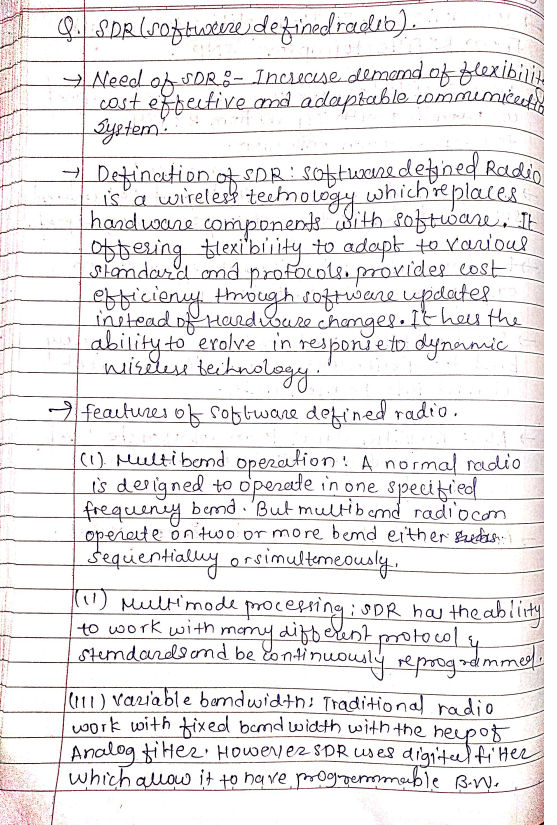 Q. SDR (software defined radio).
→ Need of SDR :- Increase demand of flexibilit
cost effective and adaptable communicatio
System.
→ Defination of SDR : software defined Radio
is a wireless technology which replaces
hardware components with software. It
offering flexibility to adapt to various
standard and protocols. provides cost
efficieny through software updates
instead of Hardware changes. It has the
ability to evolve in response to dynamic
wireless technology.
→ features of software defined radio.
(i) Multiband operation : A normal radio
is designed to operate in one specified
frequency band. But multiband radio can
operate on two or more band either
sequentially or simultaneously.
(ii) Multimode processing : SDR has the ability
to work with many different protocol &
standards and be continuously reprogrammed.
(iii) Variable bandwidth : Traditional radio
work with fixed bandwidth with the help of
Analog filter. However SDR uses digital filter
which allow it to have programmable B.W.